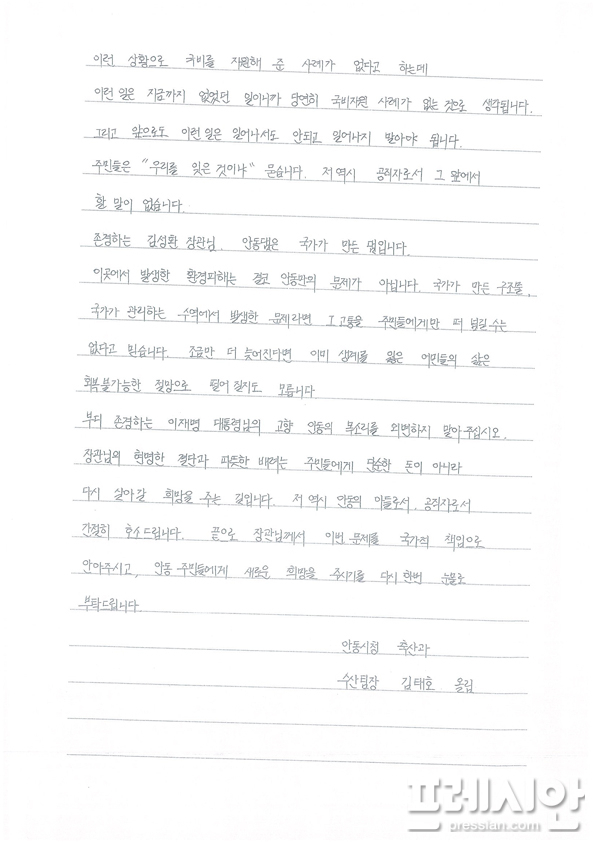 이런 상황으로 국비를 지원해 준 사례가 없다고 하는데
이런 일은 지금까지 없었던 일이니까 당연히 국비지원 사례가 없는 것으로 생각됩니다.
그리고 앞으로도 이런 일은 일어나서도 안되고 일어나지 말아야 됩니다.
주민들은 "우리를 잊은 것이냐" 묻습니다. 저 역시 공직자로서 그 앞에서
할 말이 없습니다.
존경하는 김성환 장관님. 안동댐은 국가가 만든 댐입니다.
이곳에서 발생한 환경피해는 결코 안동만의 문제가 아닙니다. 국가가 만든 구조물,
국가가 관리하는 수역에서 발생한 문제라면 그 고통을 주민들에게만 떠 넘길 수는
없다고 믿습니다. 조금만 더 늦어진다면 이미 생계를 잃은 어민들의 삶은
회복불가능한 절망으로 떨어 질지도 모릅니다
부디 존경하는 이재명 대통령님의 고향 안동의 목소리를 외면하지 말아 주십시오.
장관님의 현명한 결단과 따뜻한 배려는 주민들에게 단순한 돈이 아니라
다시 살아갈 희망을 주는 길입니다. 저 역시 안동의 아들로서, 공직자로서
간절히 호소드립니다. 끝으로 장관님께서 이번 문제를 국가적 책임으로
안아주시고, 안동 주민들에게 새로운 희망을 주시기를 다시 한번 눈물로
부탁드립니다.
안동시청 축산과
수산팀장 김태호 올림
프레시안
pressian.com